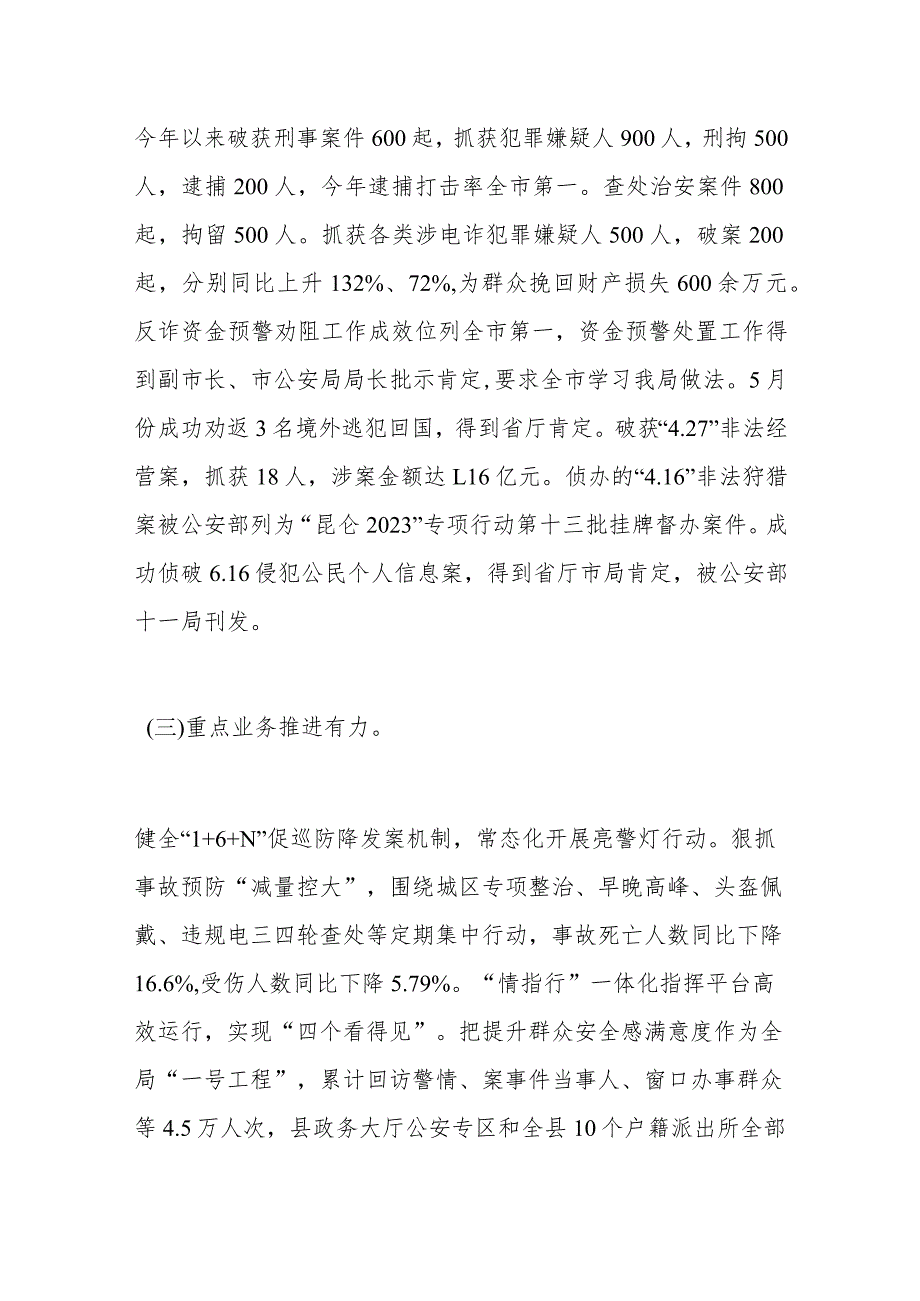 今年以来破获刑事案件 600 起，抓获犯罪嫌疑人 900 人，刑拘 500
人，逮捕 200 人，今年逮捕打击率全市第一。查处治安案件 800
起，拘留 500 人。抓获各类涉电诈犯罪嫌疑人 500 人，破案 200
起，分别同比上升 132%、72%,为群众挽回财产损失 600 余万元。
反诈资金预警劝阻工作成效位列全市第一，资金预警处置工作得
到副市长、市公安局局长批示肯定,要求全市学习我局做法。5 月
份成功劝返 3 名境外逃犯回国，得到省厅肯定。破获“4.27”非法经
营案，抓获 18 人，涉案金额达 L16 亿元。侦办的“4.16”非法狩猎
案被公安部列为“昆仑 2023”专项行动第十三批挂牌督办案件。成
功侦破 6.16 侵犯公民个人信息案，得到省厅市局肯定，被公安部
十一局刊发。
(三)重点业务推进有力。
健全“1+6+N”促巡防降发案机制，常态化开展亮警灯行动。狠抓
事故预防“减量控大”，围绕城区专项整治、早晚高峰、头盔佩
戴、违规电三四轮查处等定期集中行动，事故死亡人数同比下降
16.6%,受伤人数同比下降 5.79%。“情指行”一体化指挥平台高
效运行，实现“四个看得见”。把提升群众安全感满意度作为全
局“一号工程”，累计回访警情、案事件当事人、窗口办事群众
等 4.5 万人次，县政务大厅公安专区和全县 10 个户籍派出所全部